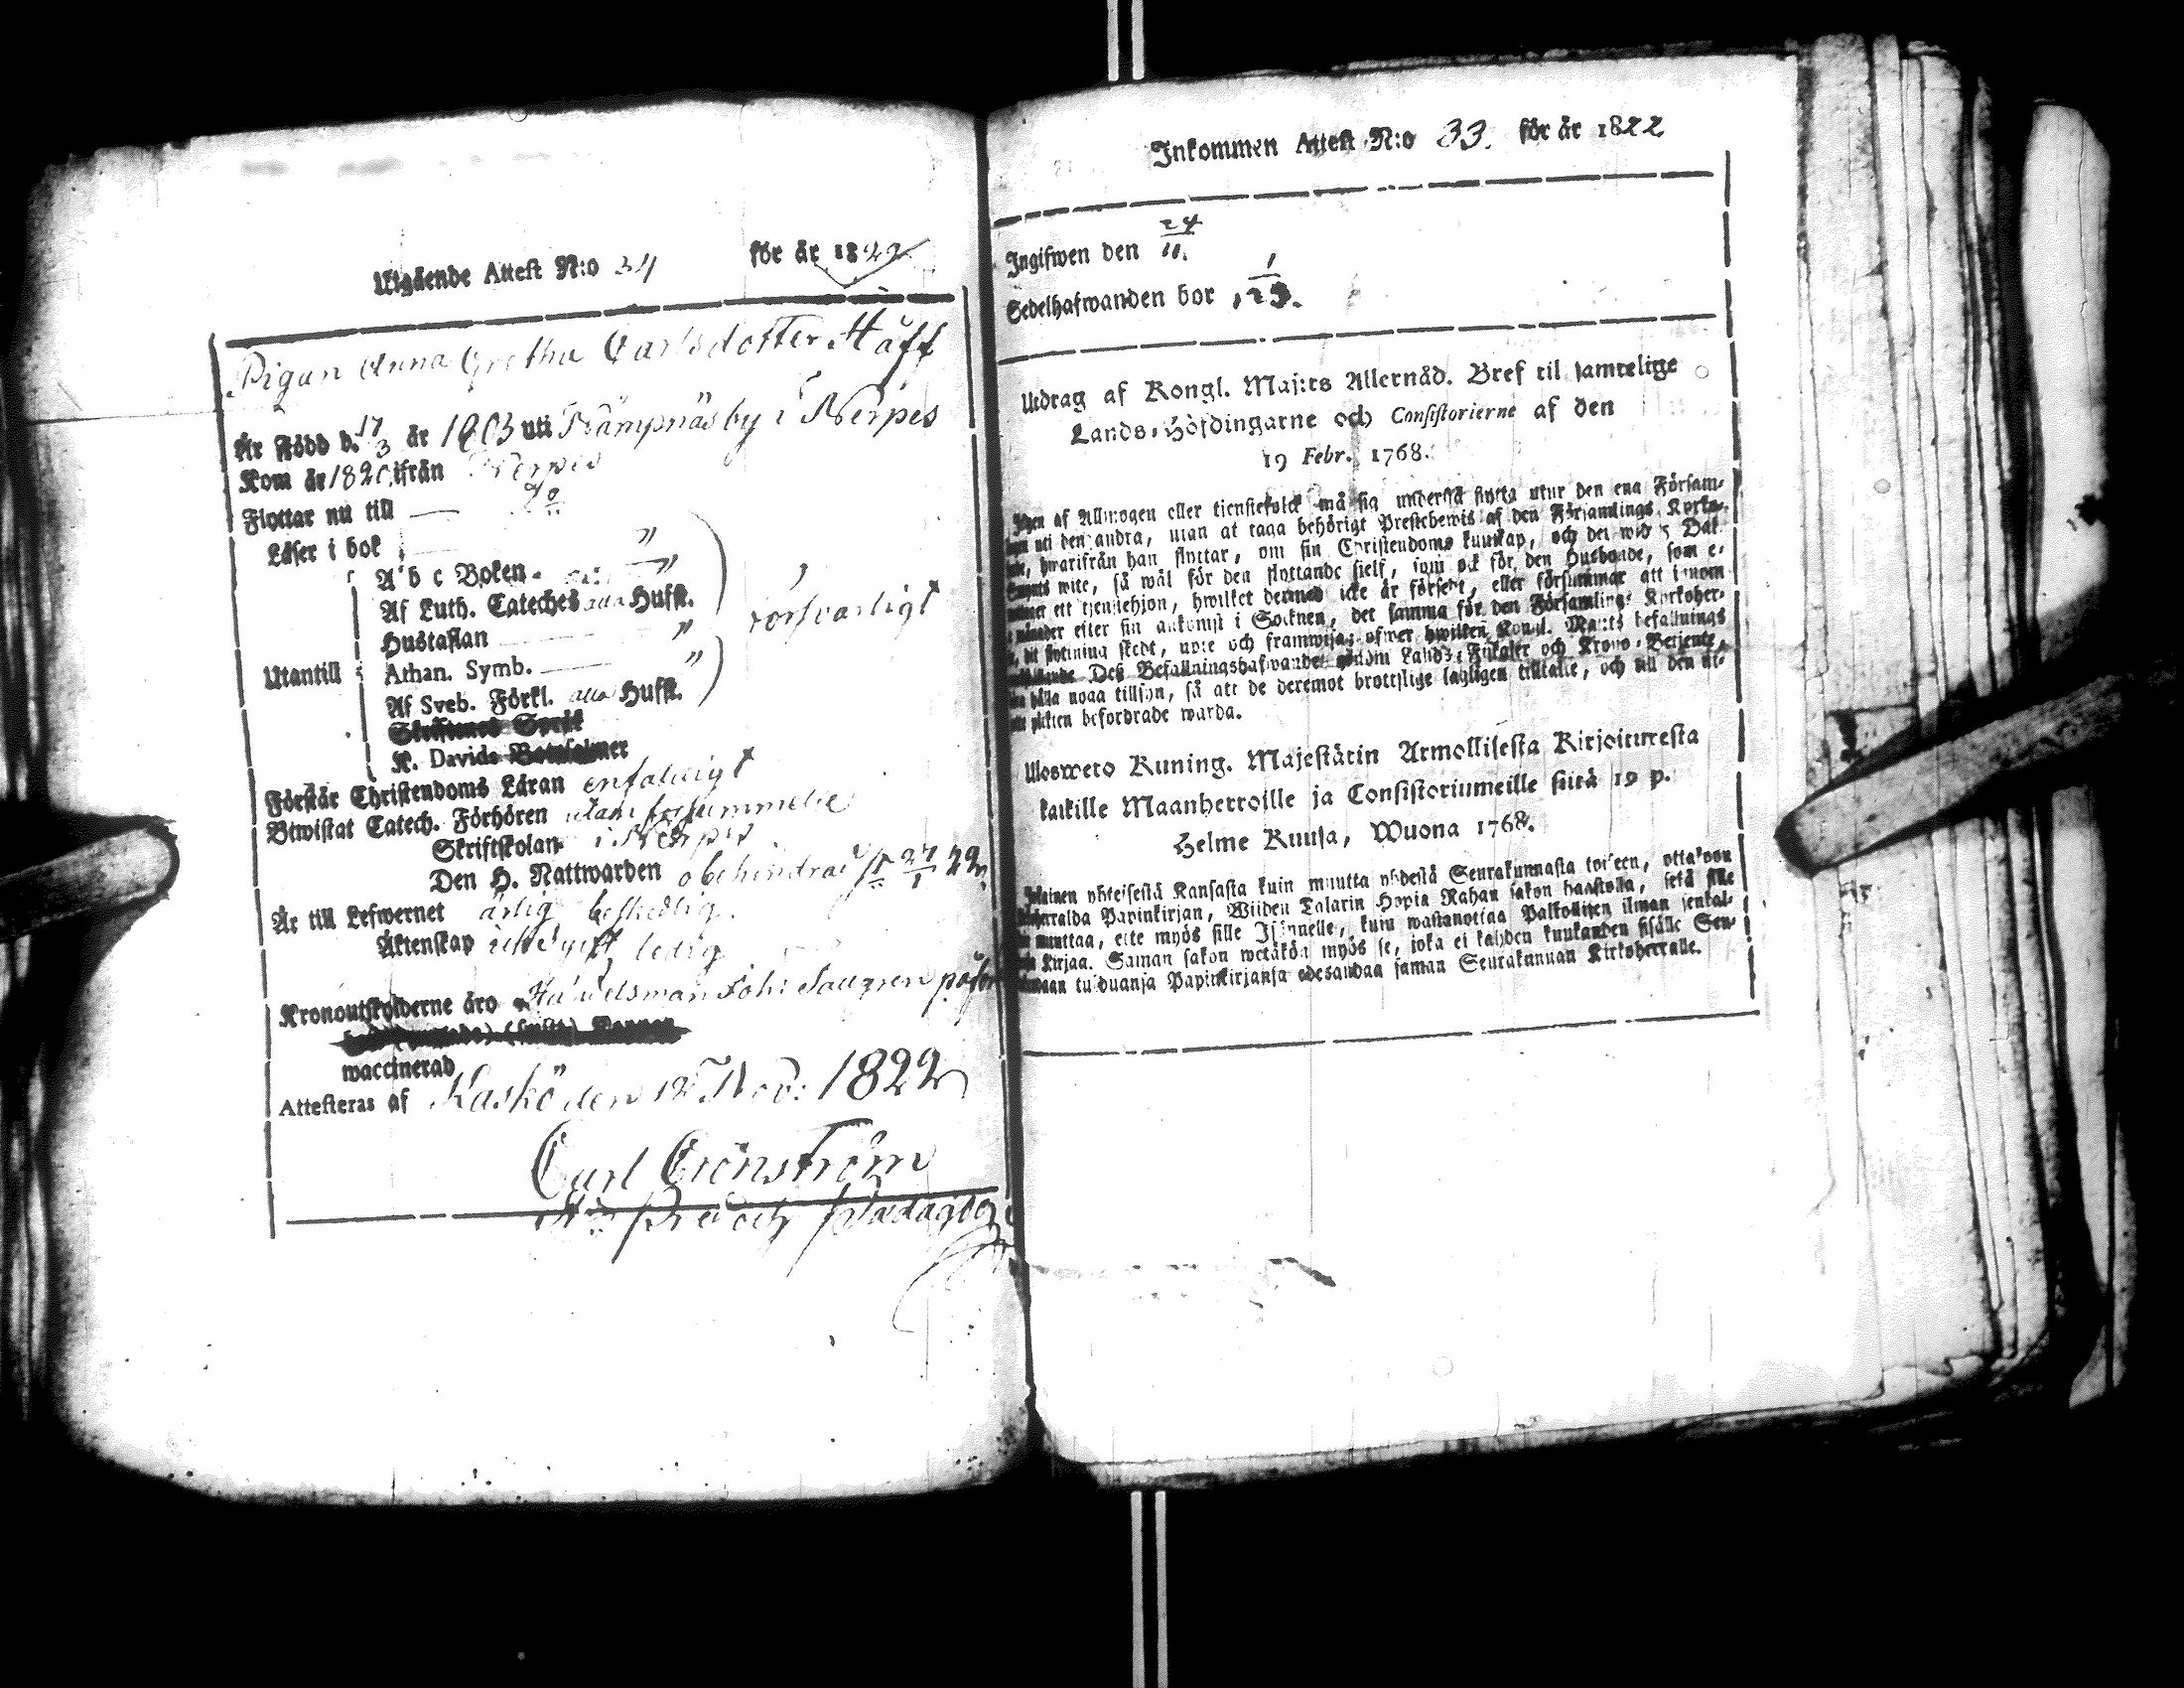 Utgående Attest N:o 34 för år 1822
Pigan Anna Gretha Carlsdotter Häff
Är Född d. 17/3 år 1803 uti Trämpnäs by i Nerpes
Kom år 1820 ifrån Nerpes
Flyttar nu till — Do
Läser i bok — "
A b c Boken — "
Af Luth. Cateches alla Hufst.
Hustaflan — "
Utantill Athan. Symb. — "
Af Sveb. Förkl. alla Hufst.
försvarligt
Skriftenes Språk
K. Davids Botpsalmer
Förstår Christendoms Läran enfaldigt
Biwistat Catech. Förhören utan försummelse
Skriftskolan i Nerpes
Den H. Nattwarden obehindrad 27/1 22
Är till Lefwernet ärlig beskedlig.
Äktenskap ledig
Kronoutskylderne äro Handelsman Joh:
waccinerad
Attesteras af Kaskö den 12 Nov: 1822
Carl Grönström
och Pædagog
Inkommen Attest N:o 33. för år 1822
Ingifwen den 24/11.
Sedelhafwanden bor
Utdrag af Kongl. Maj:ts Allernåd. Bref til samtelige
Lands-Höfdingarne och Consistorierne af den
19 Febr. 1768.
af Allmogen eller tienstefolck må sig understå flytta utur den ena Försam-
uti den andra, utan at taga behörigt Prestebewis af den Församlings Kyrko-
hwarifrån han flyttar, om sin Christendoms kunskap, och det wid 5 Dal.
wite, så wäl för den flyttande sielf, som ock för den Husbonde, som e-
ett tjenstehjon, hwilket dermed icke är försedt, eller försummar att inom
månader efter sin ankomst i Socknen, det samma för den Församlings Kyrkoher-
dit flyttning skedt, upte och framwisa; öfwer hwilken Kongl. Maj:ts befallnings
Deß Befallningshafwande genom Lands-Fiskaler och Krono-Betjente,
hålla noga tillsyn, så att de deremot brottslige lagligen tilltalte, och till den ut-
plikten befordrade warda.
Uloswero Kuning. Majestätin Armollisesta Kirjoituxesta
kaikille Maanherroille ja Consistoriumeille siitä 19 p.
Helme Kuusa, Wuona 1768.
yhteisestä Kansasta kuin muutta yhdestä Seurakunnasta toiseen, ottakoon
Papinkirjan, Wiiden Talarin Hopia Rahan sakon haastolla, sekä sille
muuttaa, ette myös sille Isännelle, kuin wastanottaa Palkollisen ilman senkal-
Kirjaa. Saman sakon wetäkön myös se, joka ei kahden kuukauden sisälle Seu-
tulduansa Papinkirjansa edesandaa saman Seurakunnan Kirkoherralle.